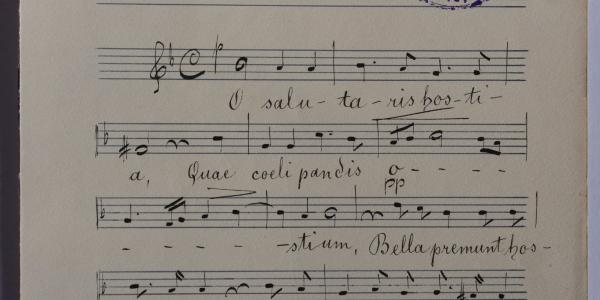 p
O salu-ta-ris hos-ti-
a, Quae coeli pandis o - - - -
pp
- - - - -stium, Bella premunt hos-